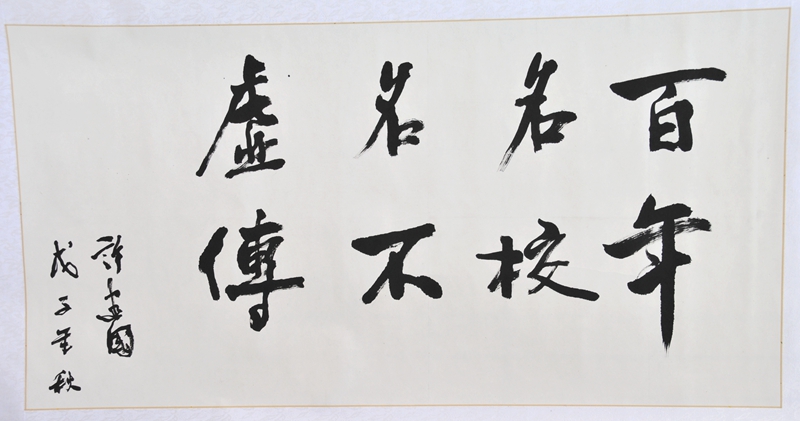 百年
名校
名不
虛傳
許嘉國
戊子年秋